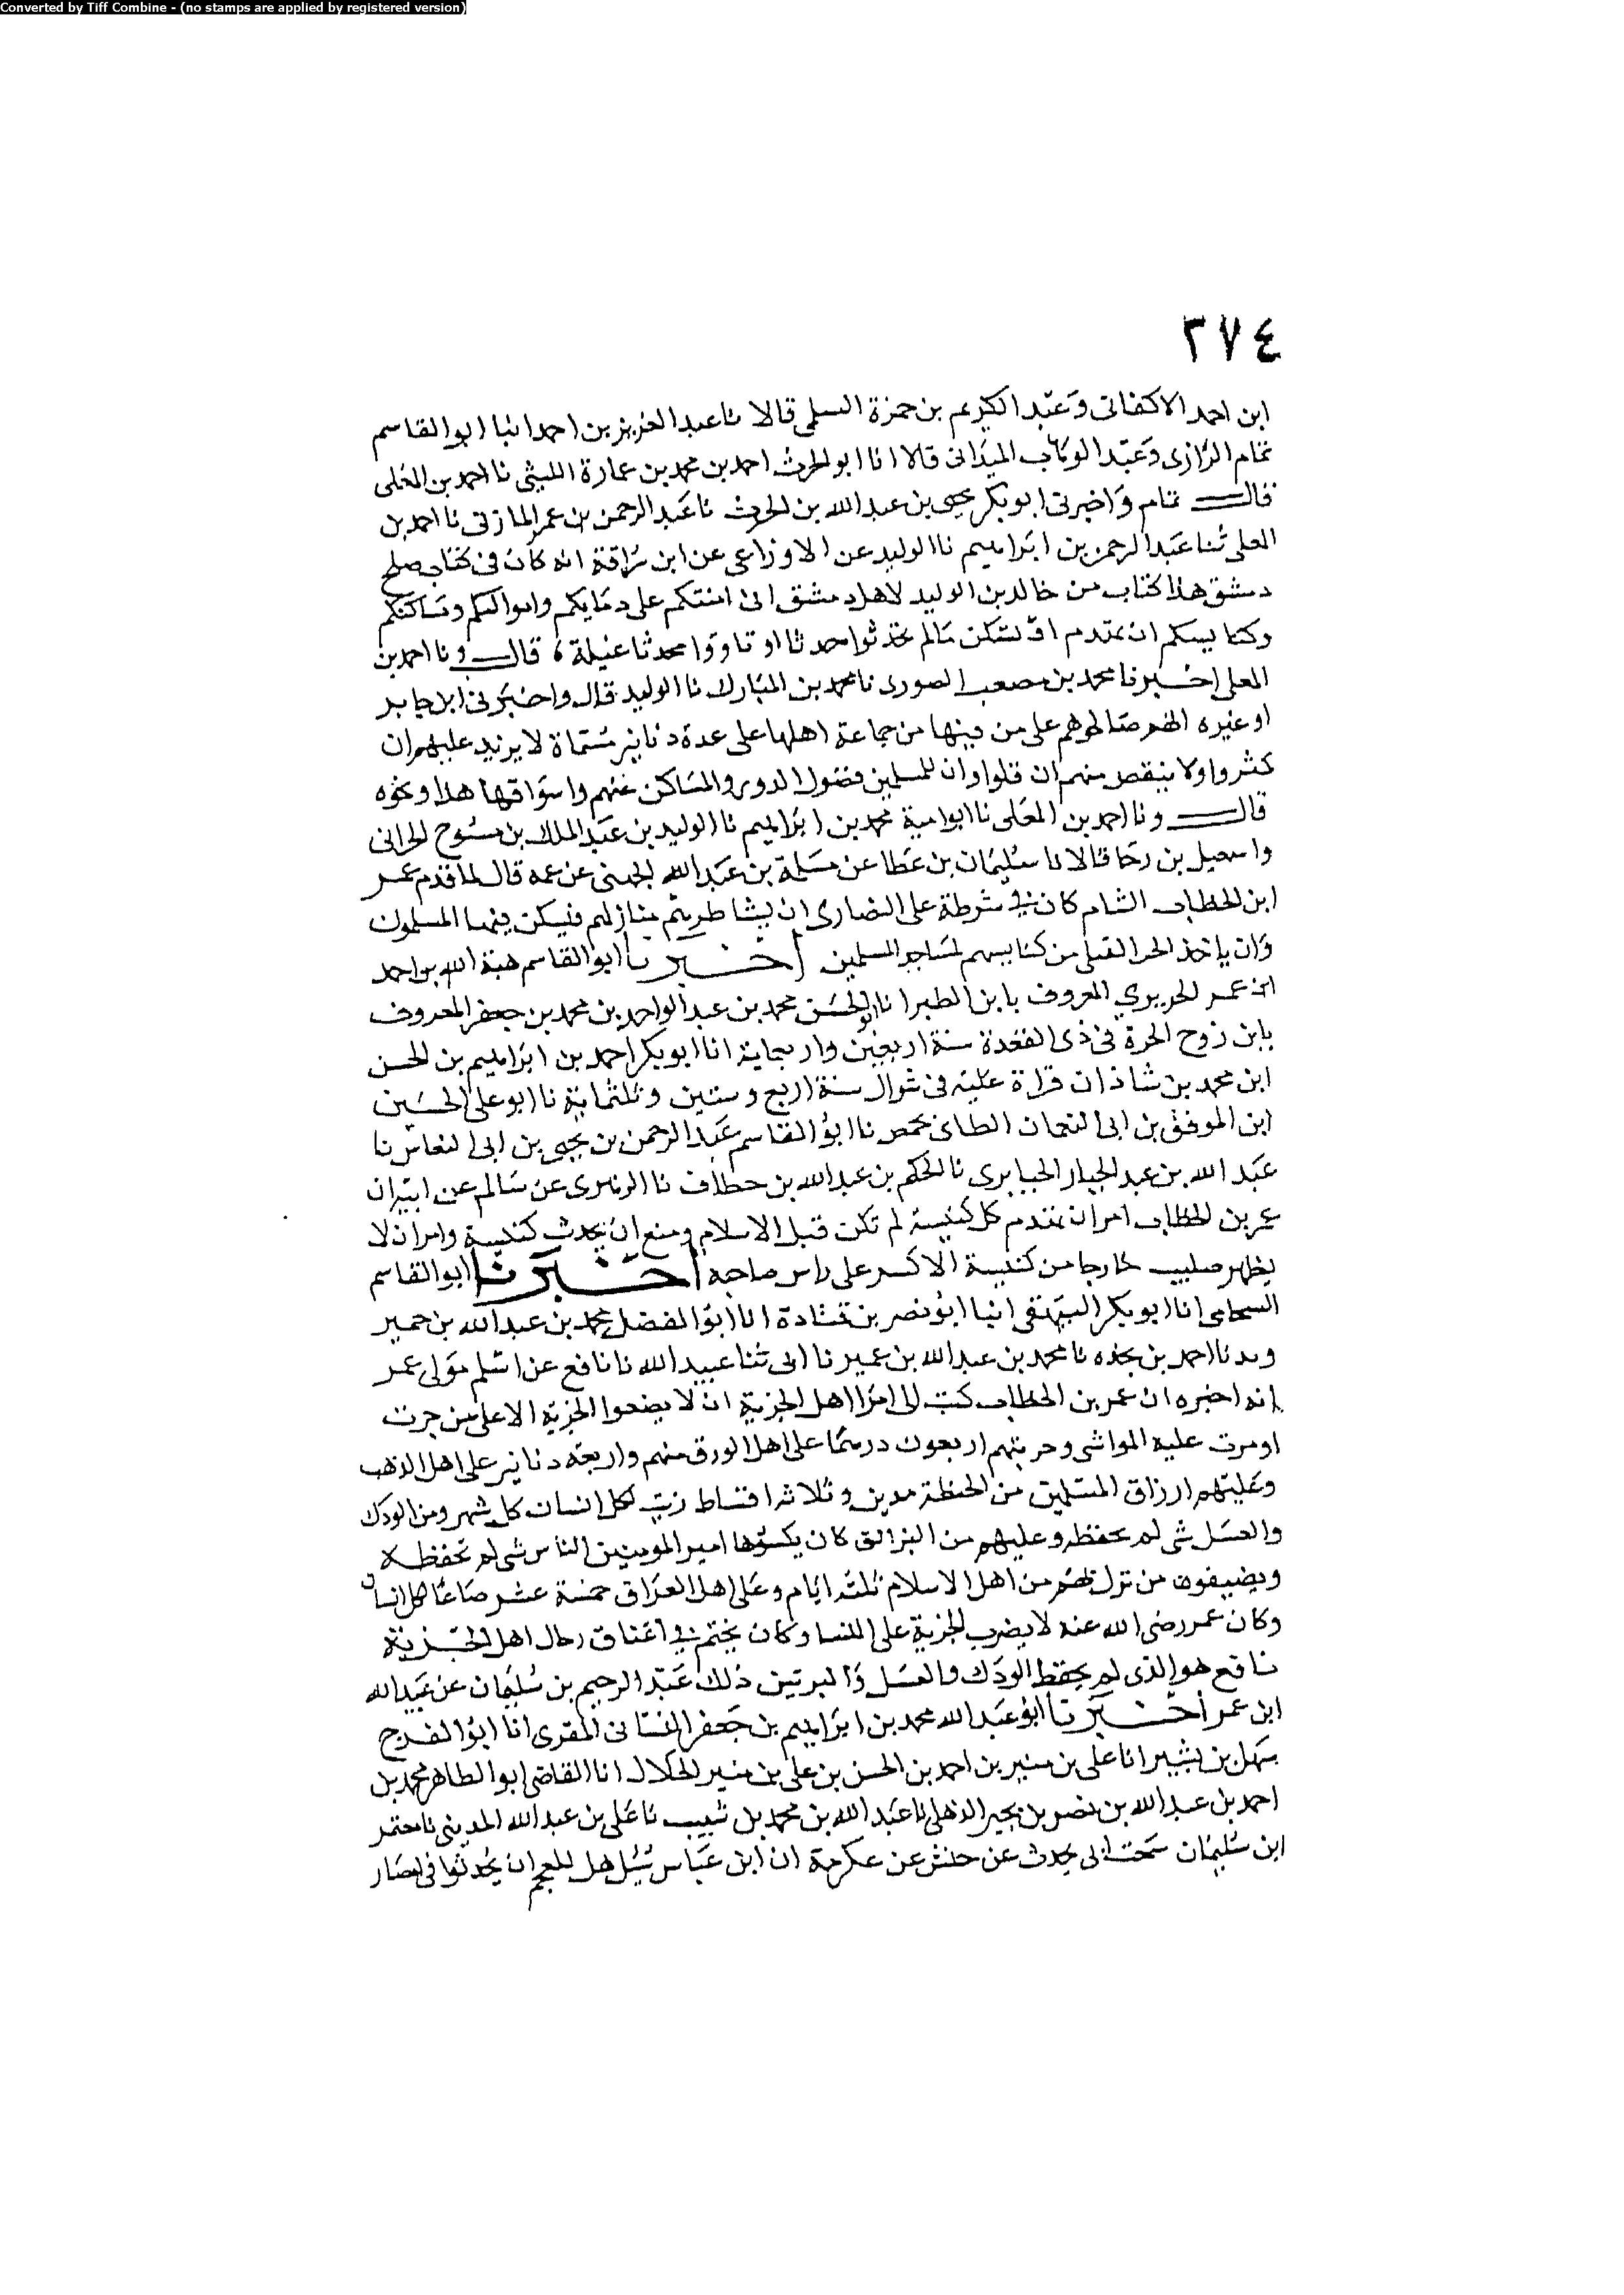 Converted by Tiff Combine - (no stamps are applied by registered version)
٢٧٤
ابن احمد الاكفانى وعبد الكريم بن حمزة السلمى قالا نا عبد العزيز بن احمد انبا ابو القاسم
تمام الرازى وعبد الوهاب الميدانى قالا انا ابو الحرث احمد بن محمد بن عمارة الليثى نا احمد بن المعلى
قال تمام واخبرنى ابو بكر يحيى بن عبد الله بن الحرث نا عبد الرحمن بن عمر المازنى نا احمد بن
المعلى ثنا عبد الرحمن بن ابراهيم نا الوليد عن الاوزاعى عن ابن سراقة انه كان فى كتاب صلح
دمشق هذا كتاب من خالد بن الوليد لاهل دمشق انى امنتكم على دمايكم واموالكم ومساكنكم
وكنايسكم ان تهدم او تسكن مالم تحدثوا حدثا او تاووا محدثا غيلة قال ونا احمد بن
المعلى اخبرنا محمد بن مصعب الصورى نا محمد بن المبارك نا الوليد قال واخبرنى ابن جابر
او غيره انهم صالحوهم على من فيها من جماعة اهلها على عدة دنانير مسماة لا يزيد عليهم ان
كثروا ولا ينقص منهم ان قلوا وان للمسلمين فضول الدور والمساكن عنهم واسواقها هذا ونحوه
قال ونا احمد بن المعلى نا ابو امية محمد بن ابراهيم نا الوليد بن عبد الملك بن مسرح الحرانى
واسمعيل بن رجا قالا نا سليمان بن عطا عن مسلمة بن عبد الله الجهنى عن عمه قال لما قدم عمر
ابن الخطاب الشام كان فى شرطة على النصارى ان يشاطرهم منازلهم فيسكن فيها المسلمون
وان ياخذ الحيز القبلى من كنايسهم لمساجد المسلمين اخبرنا ابو القاسم هبة الله بن احمد
ابن عمر الحريرى المعروف بابن الطبر انا ابو الحسن محمد بن عبد الواحد بن محمد بن جعفر المعروف
بابن زوج الحرة فى ذى القعدة سنة اربعين واربعماية انا ابو بكر احمد بن ابراهيم بن الحسن
ابن محمد بن شاذان قراة عليه فى شوال سنة اربع وستين وثلثماية نا ابو على الحسين
ابن الموفق بن ابى النعمان الطائى بحمص نا ابو القاسم عبد الرحمن بن يحيى بن ابى النعاس نا
عبد الله بن عبد الجبار الخبايرى نا الحكم بن عبد الله بن خطاف نا الزهرى عن سالم عن ابيه ان
عمر بن الخطاب امر ان تهدم كل كنيسة لم تكن قبل الاسلام ومنع ان يحدث كنيسة وامر ان لا
يظهر صليب خارجا من كنيسة الا كسر على راس صاحبه اخبرنا ابو القاسم
السحامى انا ابو بكر البيهقى انبا ابو نصر بن قتادة انا ابو الفضل محمد بن عبد الله بن حمير
نا احمد بن نجده نا محمد بن عبد الله بن نمير نا ابى ثنا عبيد الله نا نافع عن اسلم مولى عمر
انه اخبره ان عمر بن الخطاب كتب الى امرا اهل الجزية ان لا يضعوا الجزية الا على من جرت
او مرت عليه المواشى وجزيتهم اربعون درهما على اهل الورق منهم واربعة دنانير على اهل الذهب
وعليهم ارزاق المسلمين من الحنظة مدين وثلاثه اقساط زيت لكل انسان كل شهر ومن الودك
والعسل شى لم يحفظه وعليهم من البز التى كان يكسوها امير المومنين الناس شى لم يحفظه
ويضيفون من نزل بهم من اهل الاسلام ثلثه ايام وعلى اهل العراق خمسة عشر صاعا كل انسان
وكان عمر رضى الله عنه لا يضرب الجزية على النسا وكان يختم فى اعناق رجال اهل الجزية
نافع هو الذى لم يحفظ الودك والعسل ذلك عبد الرحيم بن سليمان عن عبيد الله
ابن عمر اخبرنا ابو عبد الله محمد بن ابراهيم بن جعفر المقرى انا ابو الفرج
سهل بن بشير انا على بن منير بن احمد بن الحسن بن على بن منير الخلال انا القاضى ابو الطاهر محمد بن
احمد بن عبد الله بن نصر بن بجير الذهلى نا عبد الله بن محمد بن شبيب نا على بن عبد الله المدينى نا معتمر
ابن سليمان سمعت ابى يحدث عن حنش عن عكرمة ان ابن عباس سئل هل للعجم ان يحدثوا فى امصار